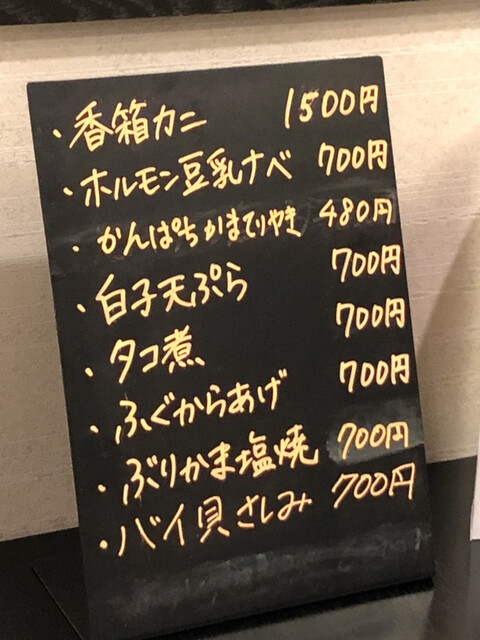 ・香箱カニ 1500円
・ホルモン豆乳ナベ 700円
・かんぱちかまてりやき 480円
・白子天ぷら 700円
・タコ煮 700円
・ふぐからあげ 700円
・ぶりかま塩焼 700円
・バイ貝さしみ 700円